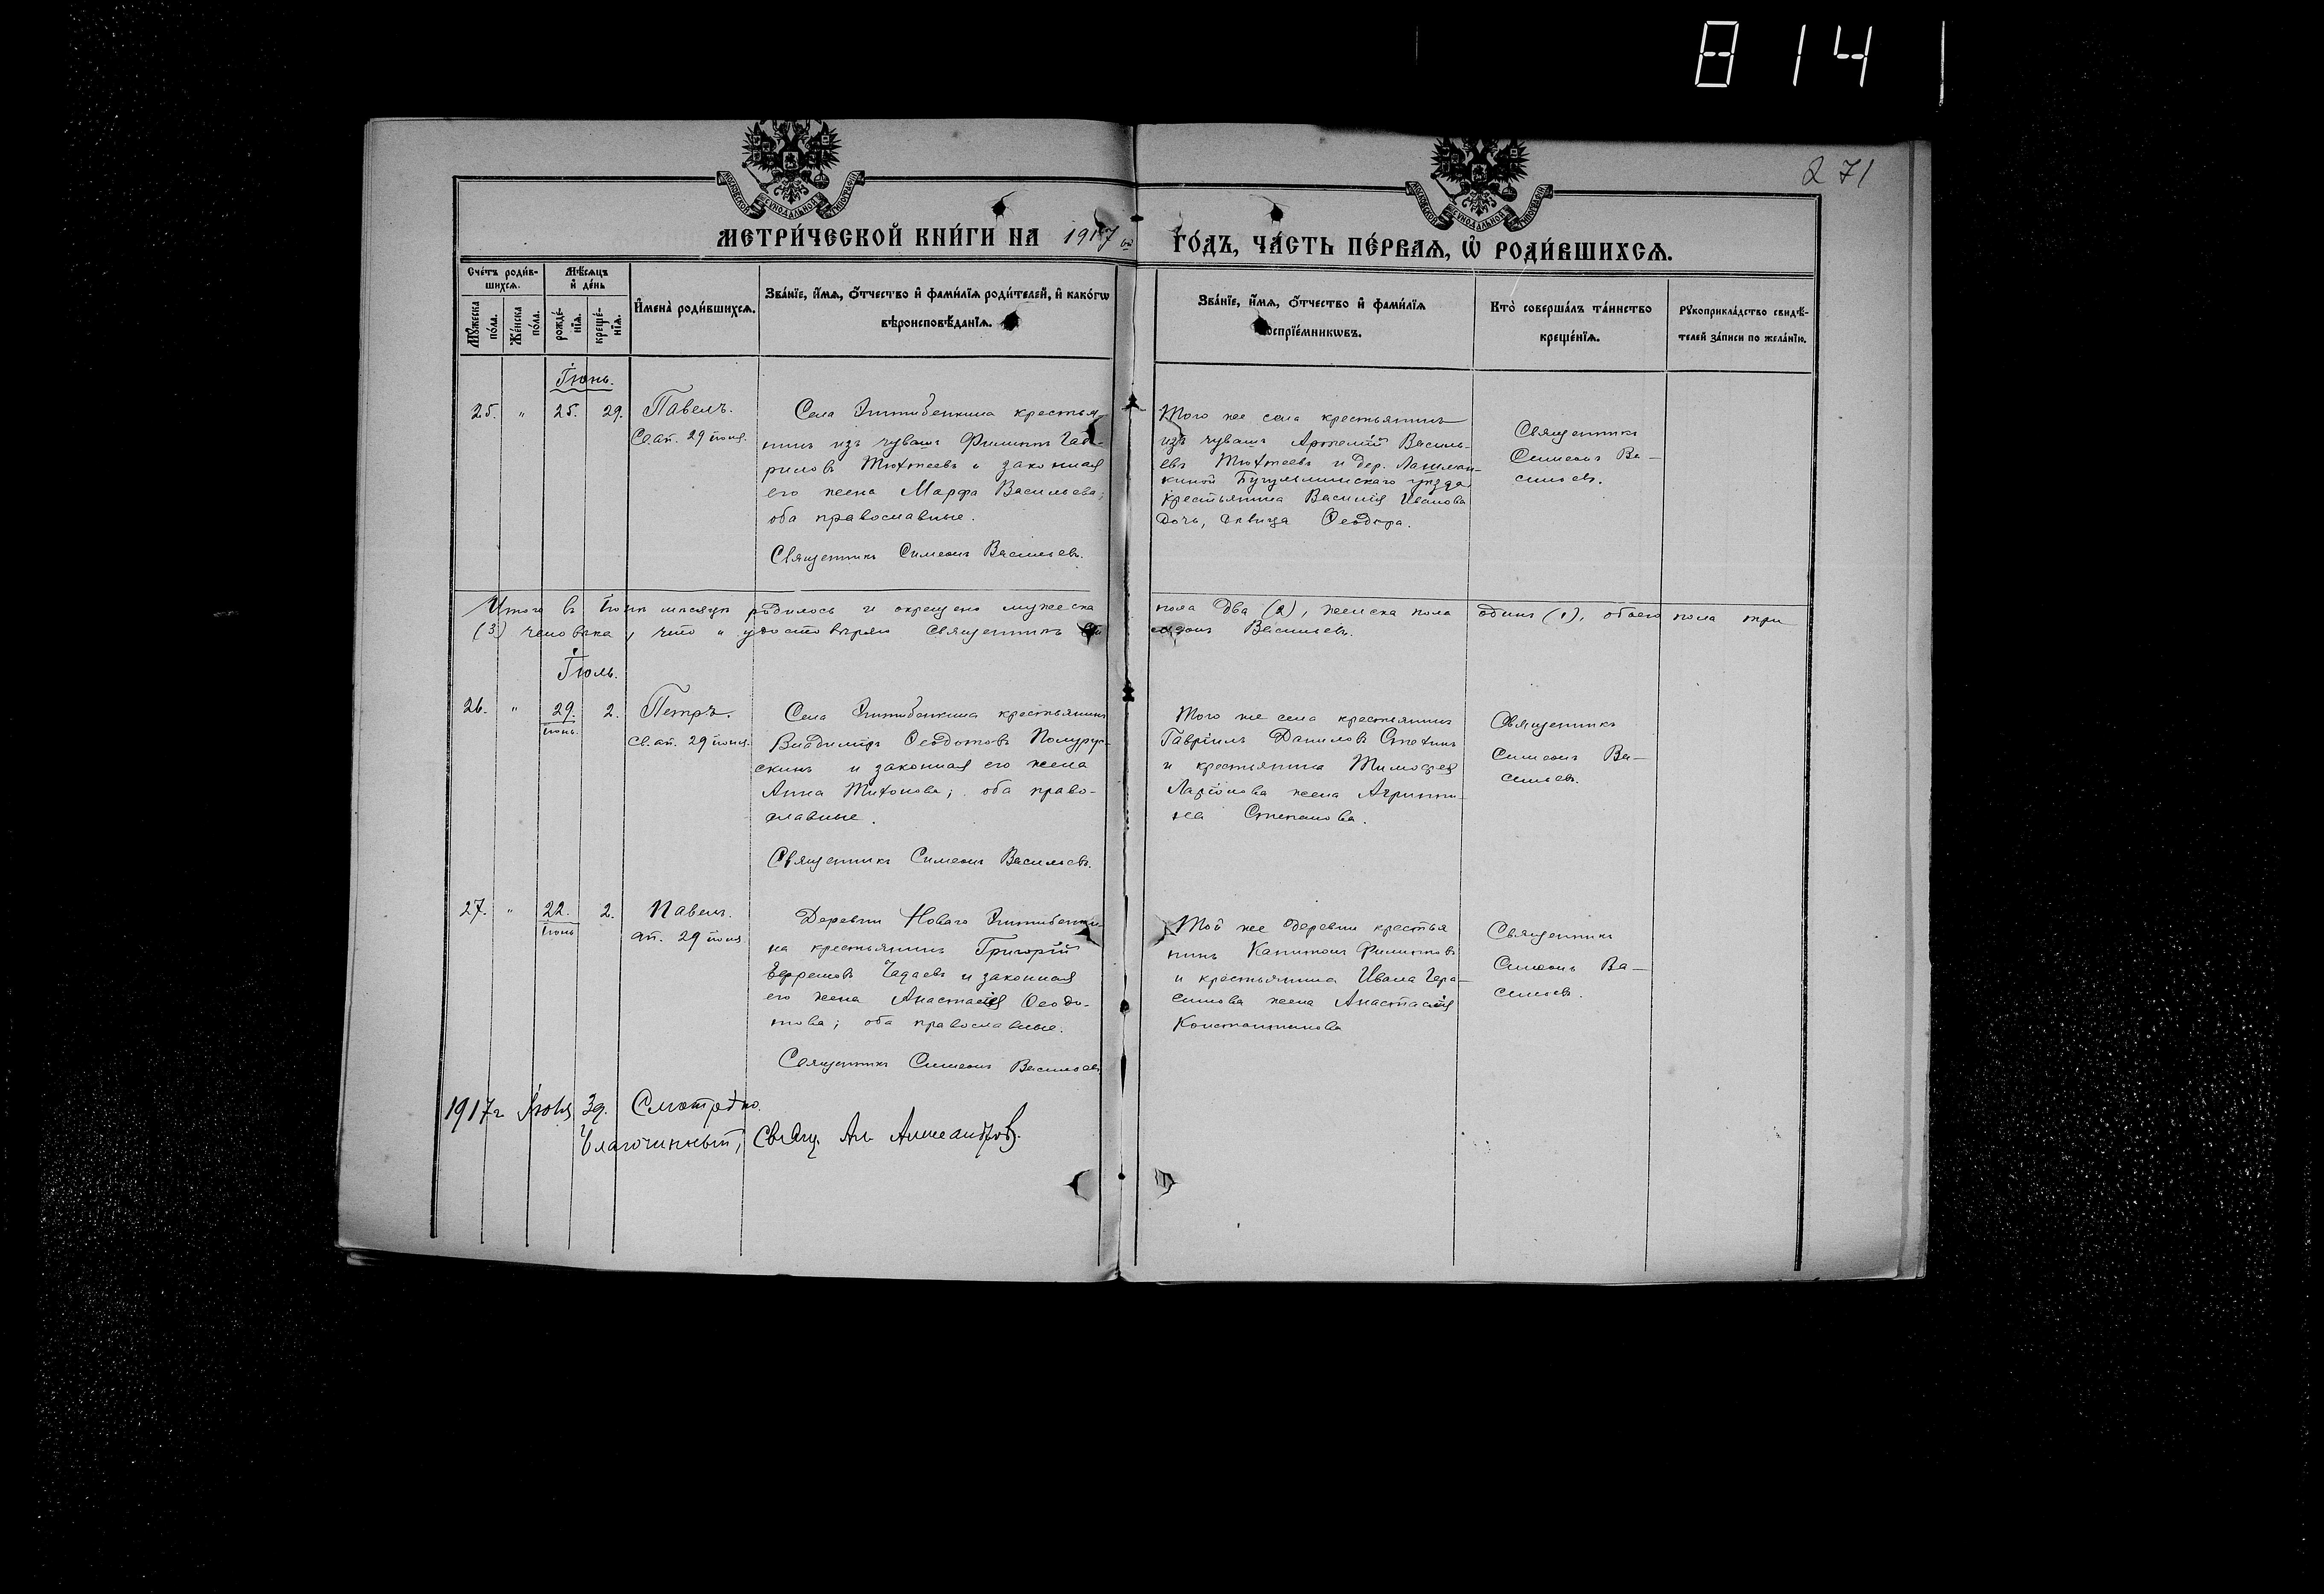 8 14
271
МОСКОВСКОЙ СѴНОДАЛЬНОЙ ТИПОГРАФІИ
МОСКОВСКОЙ СѴНОДАЛЬНОЙ ТИПОГРАФІИ
МЕТРИ́ЧЕСКОЙ КНИ́ГИ НА 1917 ый
ГО́ДЪ, ЧА́СТЬ ПЕ́РВАѦ, Ѡ РОДИ́ВШИХСѦ.
Сче́тъ роди́в-
шихсѧ.
Мѣ́сѧцъ
и҆ де́нь
Мꙋ́жеска
по́ла.
Же́нска
по́ла.
рожде́-
нїѧ.
креще́-
нїѧ.
И҆мена̀ роди́вшихсѧ.
Зва́нїе, и҆́мѧ, ѻ҆́тчество и҆ фами́лїѧ роди́телей, и҆ како́гѡ
вѣроисповѣ́данїѧ.
Зва́нїе, и҆́мѧ, ѻ҆́тчество и҆ фами́лїѧ
воспрїе́мникѡвъ.
Кто̀ соверша́лъ та́инство
креще́нїѧ.
Рꙋкоприкла́дство свидѣ́-
телей за́писи по жела́нїю.
Іюнь.
25. " 25. 29. Павелъ.
Св. ап. 29 іюня.
Села крестья-
нинъ изъ чувашъ Филиппъ Гав-
риловъ Тюхтеевъ и законная
его жена Марфа Васильева;
оба православные.
Священникъ Симеонъ Васильевъ.
Того же села крестьянинъ
изъ чувашъ Артемій Василь-
евъ Тюхтеевъ и дер. Лашман-
киной Бугульминскаго уѣзда
крестьянина Василія Иванова
дочь, дѣвица Ѳеодора.
Священникъ
Симеонъ Ва-
сильевъ.
Итого въ Іюнѣ мѣсяцѣ родилось и окрещено мужеска пола два (2), женска пола одинъ (1), обоего пола три
(3) человѣка, что и удостовѣряю Священникъ Симеонъ Васильевъ.
Іюль.
26. " 29. 2. Петръ.
іюнь.
Св. ап. 29 іюня.
Села крестьянинъ
Владиміръ Ѳеодотовъ Полурус-
скинъ и законная его жена
Анна Тихонова; оба право-
славные.
Священникъ Симеонъ Васильевъ.
Того же села крестьянинъ
Гавріилъ Даниловъ Стехинъ
и крестьянина Тимофея
Ларіонова жена Агриппи-
на Степанова.
Священникъ
Симеонъ Ва-
сильевъ.
27. " 22. 2. Павелъ.
іюнь
ап. 29 іюня.
Деревни Новаго
на крестьянинъ Григорій
Ефремовъ Чадаевъ и законная
его жена Анастасія Ѳеодо-
това; оба православные.
Священникъ Симеонъ Васильевъ
Той же деревни крестья
нинъ Капитонъ Филипповъ
и крестьянина Ивана Гера-
симова жена Анастасія
Константинова
Священникъ
Симеонъ Ва-
сильевъ.
1917 г Іюля 3д. Смотрѣно.
Благочинный, Свящ. Ал. Александровъ.